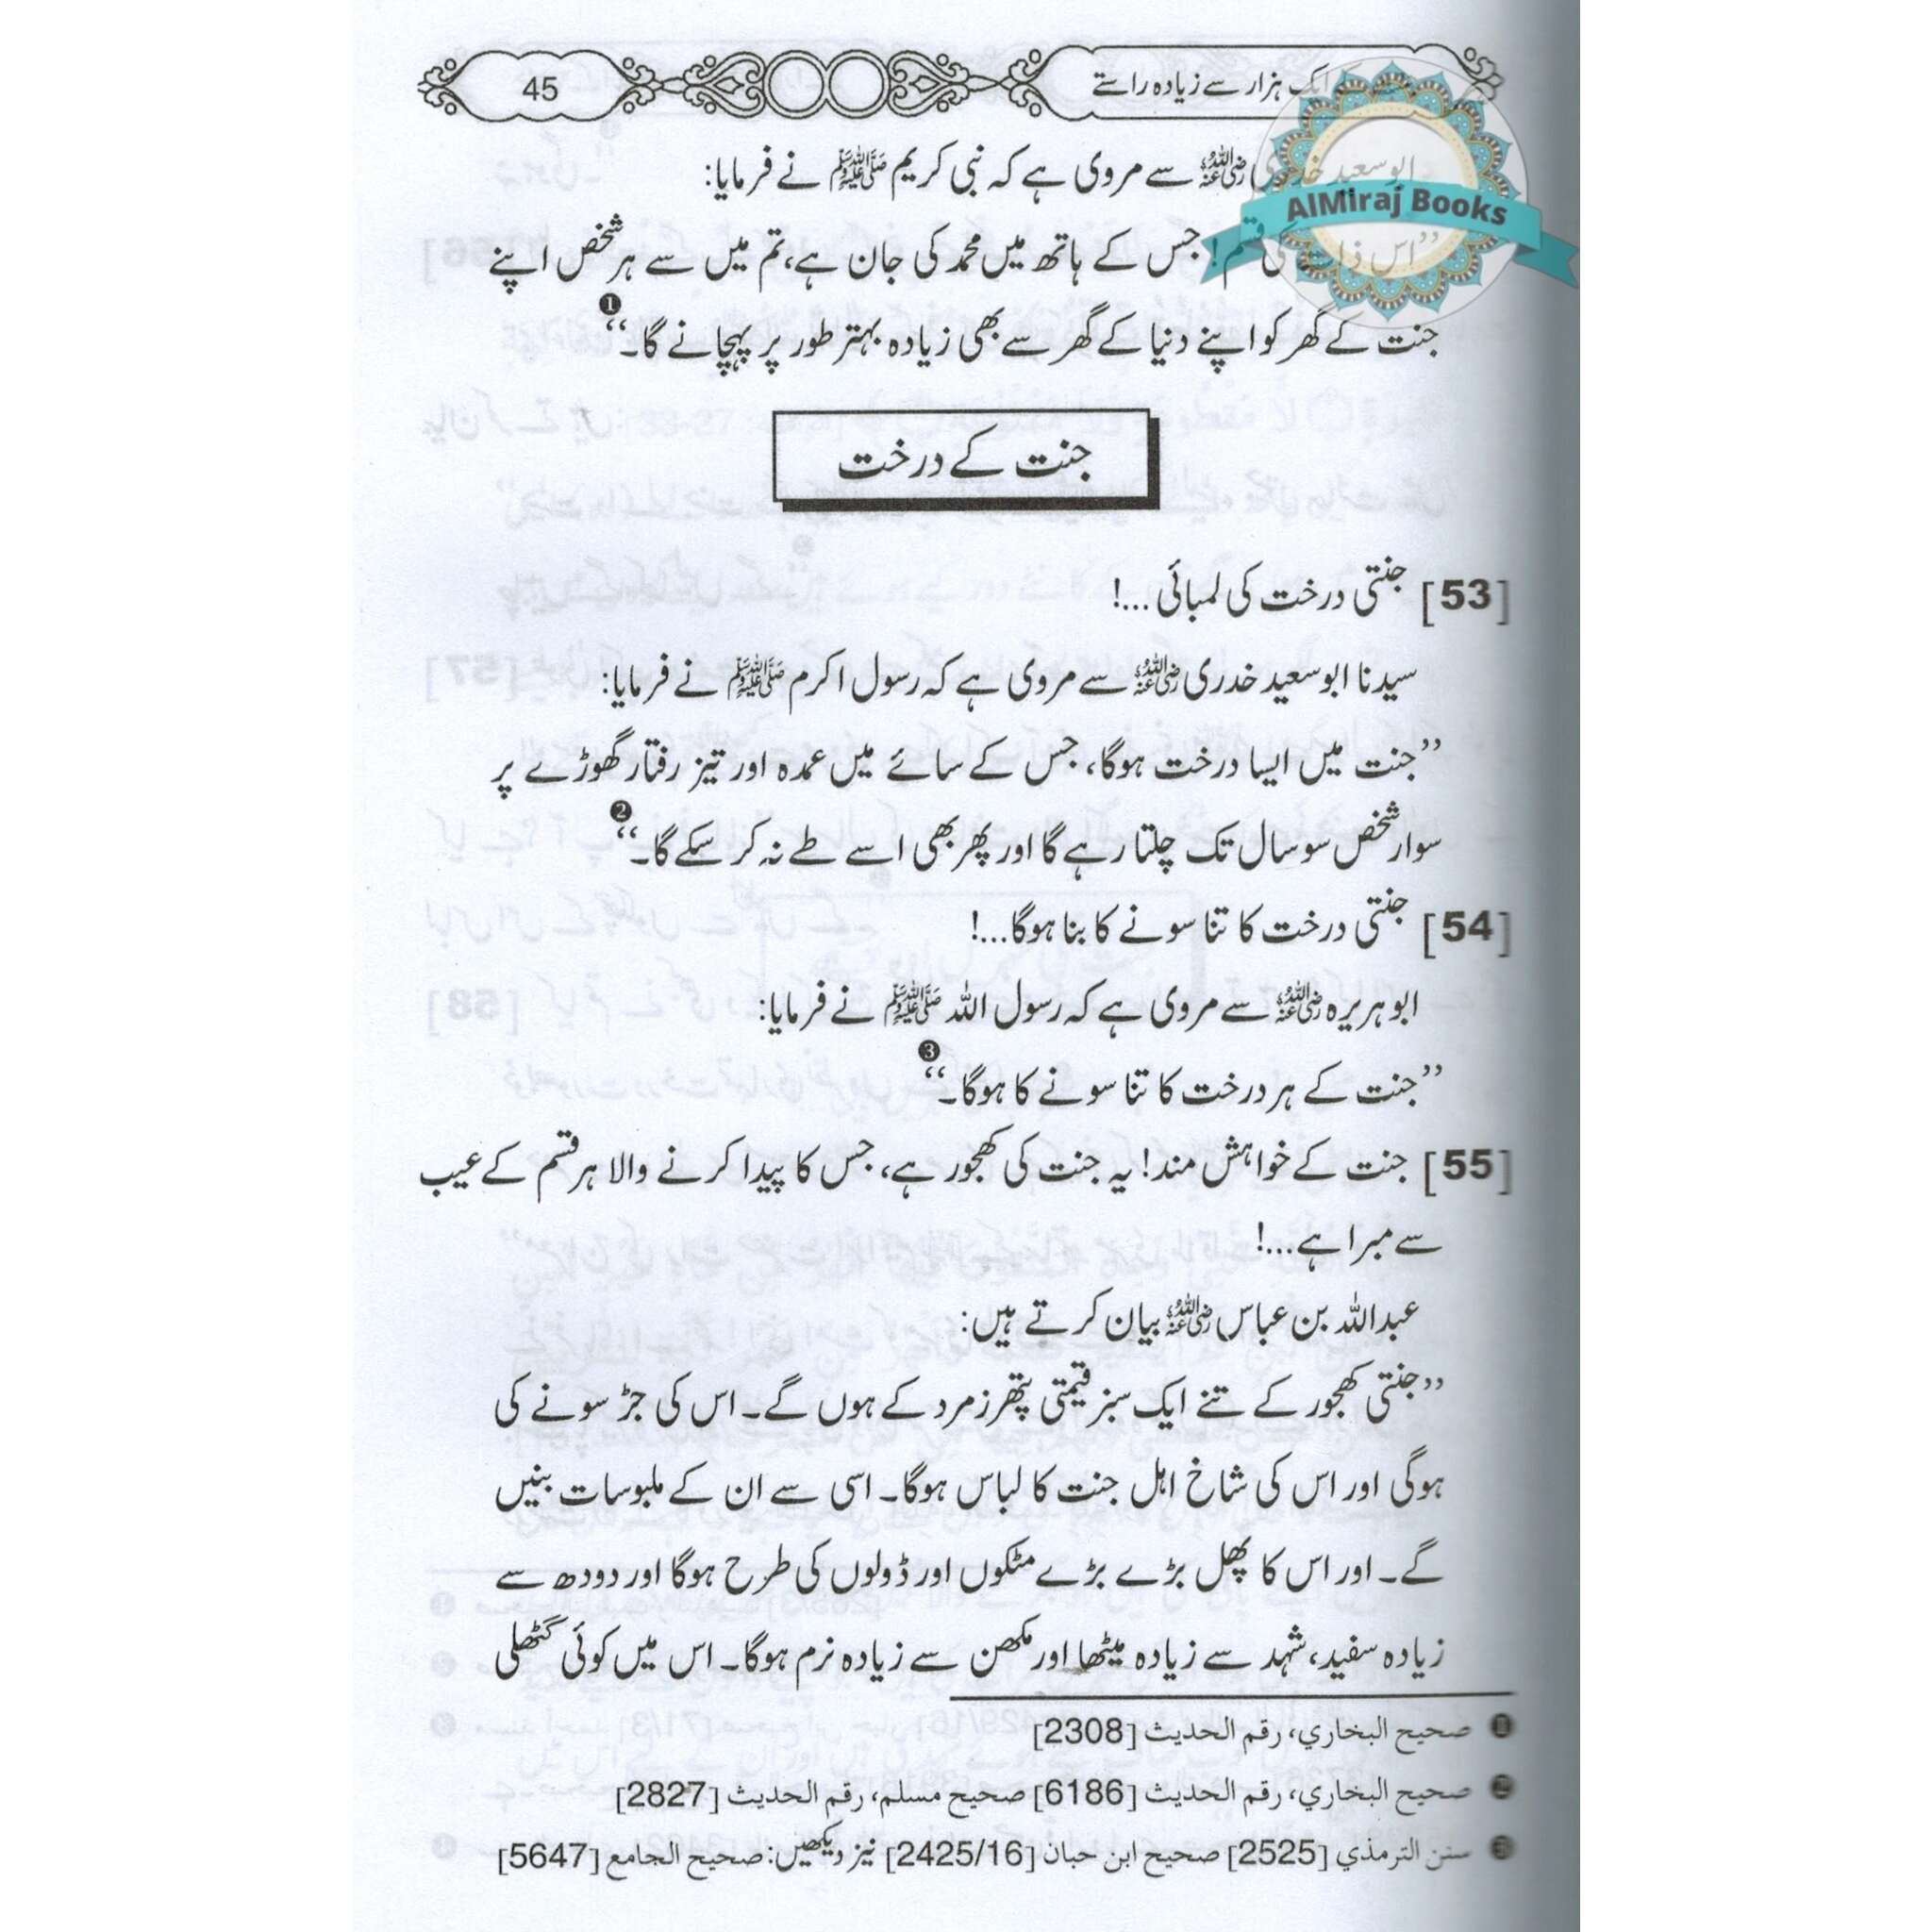 ایک ہزار سے زیادہ راستے
45
AlMiraj Books
ابو سعید خدری رضی اللہ عنہ سے مروی ہے کہ نبی کریم ﷺ نے فرمایا:
”اس ذات کی قسم! جس کے ہاتھ میں محمد کی جان ہے، تم میں سے ہر شخص اپنے
جنت کے گھر کو اپنے دنیا کے گھر سے بھی زیادہ بہتر طور پر پہچانے گا۔“ ❶
جنت کے درخت
[53] جنتی درخت کی لمبائی ...!
سیدنا ابو سعید خدری رضی اللہ عنہ سے مروی ہے کہ رسول اکرم ﷺ نے فرمایا:
”جنت میں ایسا درخت ہوگا، جس کے سائے میں عمدہ اور تیز رفتار گھوڑے پر
سوار شخص سو سال تک چلتا رہے گا اور پھر بھی اسے طے نہ کر سکے گا۔“ ❷
[54] جنتی درخت کا تنا سونے کا بنا ہوگا...!
ابو ہریرہ رضی اللہ عنہ سے مروی ہے کہ رسول اللہ ﷺ نے فرمایا:
”جنت کے ہر درخت کا تنا سونے کا ہوگا۔“ ❸
[55] جنت کے خواہش مند! یہ جنت کی کھجور ہے، جس کا پیدا کرنے والا ہر قسم کے عیب
سے مبرا ہے...!
عبداللہ بن عباس رضی اللہ عنہ بیان کرتے ہیں:
”جنتی کھجور کے تنے ایک سبز قیمتی پتھر زمرد کے ہوں گے۔ اس کی جڑ سونے کی
ہوگی اور اس کی شاخ اہل جنت کا لباس ہوگا۔ اسی سے ان کے ملبوسات بنیں
گے۔ اور اس کا پھل بڑے بڑے مٹکوں اور ڈولوں کی طرح ہوگا اور دودھ سے
زیادہ سفید، شہد سے زیادہ میٹھا اور مکھن سے زیادہ نرم ہوگا۔ اس میں کوئی گٹھلی
❶ صحیح البخاري، رقم الحدیث [2308]
❷ صحیح البخاري، رقم الحدیث [6186] صحیح مسلم، رقم الحدیث [2827]
❸ سنن الترمذي [2525] صحیح ابن حبان [2425/16] نیز دیکھیں: صحیح الجامع [5647]